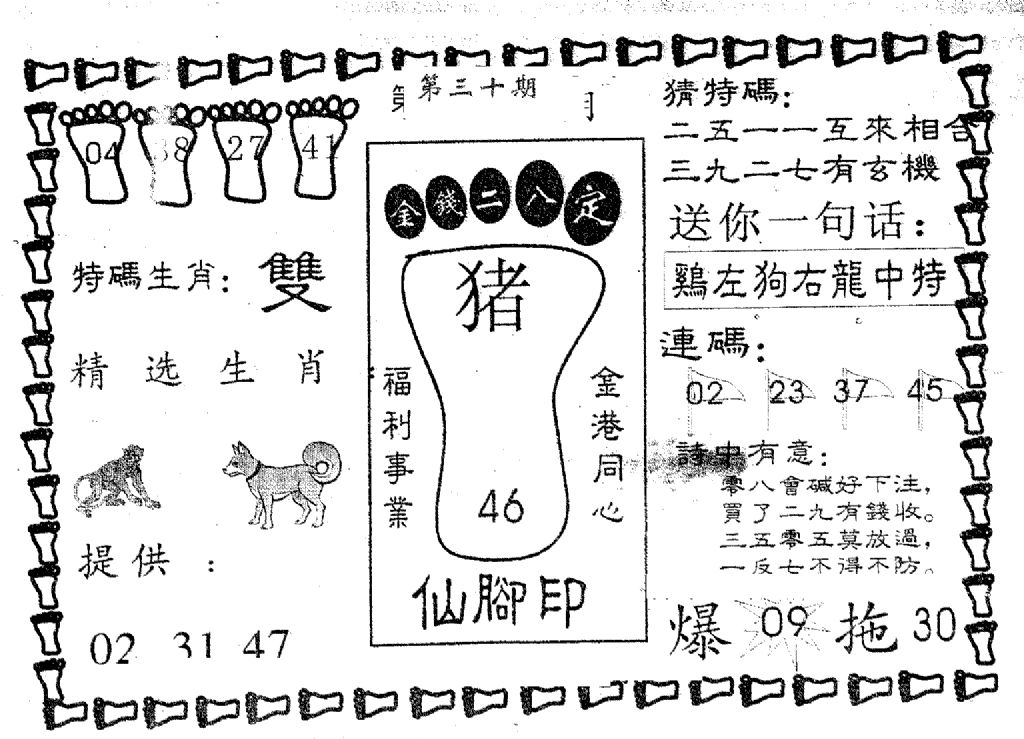 第三十期
月
04 38 27 41
特碼生肖：雙
精选生肖
提供：
02 31 47
金錢二八定
猪
福利事業
金港同心
46
仙腳印
猜特碼：
二五一一互來相合
三九二七有玄機
送你一句话：
鷄左狗右龍中特
連碼：
02 23 37 45
詩中有意：
零八會碱好下注，
買了二九有錢收。
三五零五莫放過，
一反七不得不防。
爆 09 拖 30